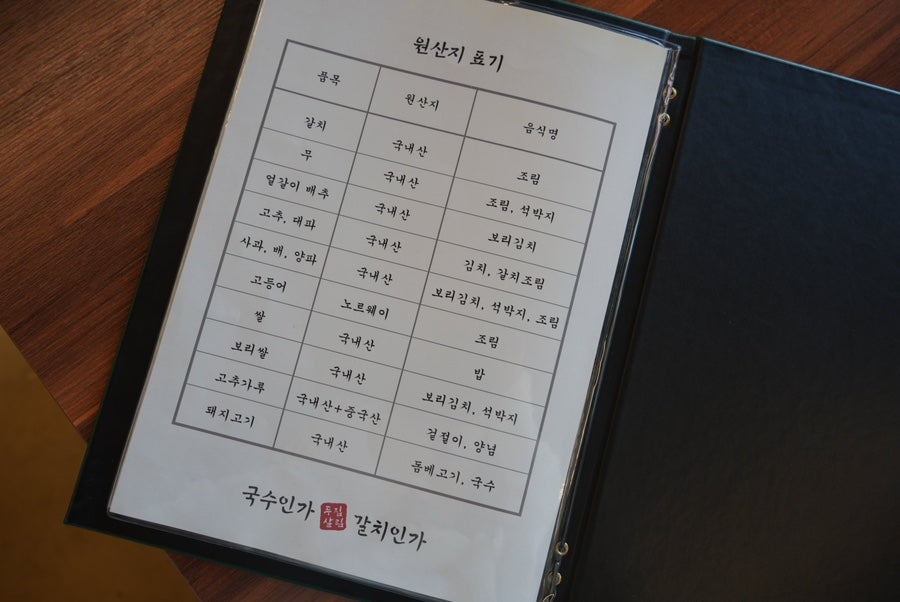 원산지 표기
품목 원산지 음식명
갈치 국내산 조림
무 국내산 조림, 석박지
얼갈이 배추 국내산 보리김치
고추, 대파 국내산 김치, 갈치조림
사과, 배, 양파 국내산 보리김치, 석박지, 조림
고등어 노르웨이 조림
쌀 국내산 밥
보리쌀 국내산 보리김치, 석박지
고추가루 국내산+중국산 겉절이, 양념
돼지고기 국내산 돔베고기, 국수
국수인가 두집살림 갈치인가